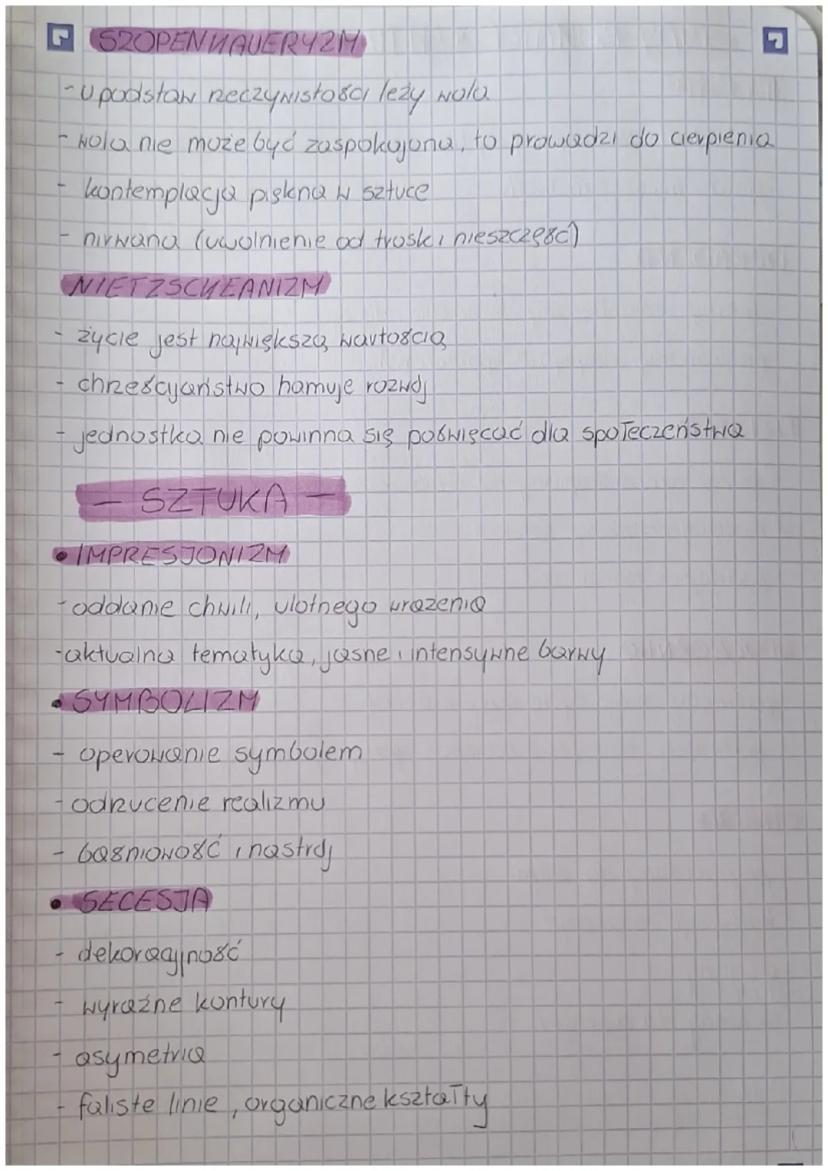 SZOPENHAUERYZM
- u podstaw rzeczywistości leży wola
- wola nie może być zaspokojona, to prowadzi do cierpienia
- kontemplacja piękna w sztuce
- nirwana (uwolnienie od trosk i nieszczęść)
NIETZSCHEANIZM
- życie jest największą wartością
- chrześcijaństwo hamuje rozwój
- jednostka nie powinna się poświęcać dla społeczeństwa
— SZTUKA —
• IMPRESJONIZM
- oddanie chwili, ulotnego wrażenia
- aktualna tematyka, jasne i intensywne barwy
• SYMBOLIZM
- operowanie symbolem
- odrzucenie realizmu
- baśniowość i nastrój
• SECESJA
- dekoracyjność
- wyraźne kontury
- asymetria
- faliste linie, organiczne kształty